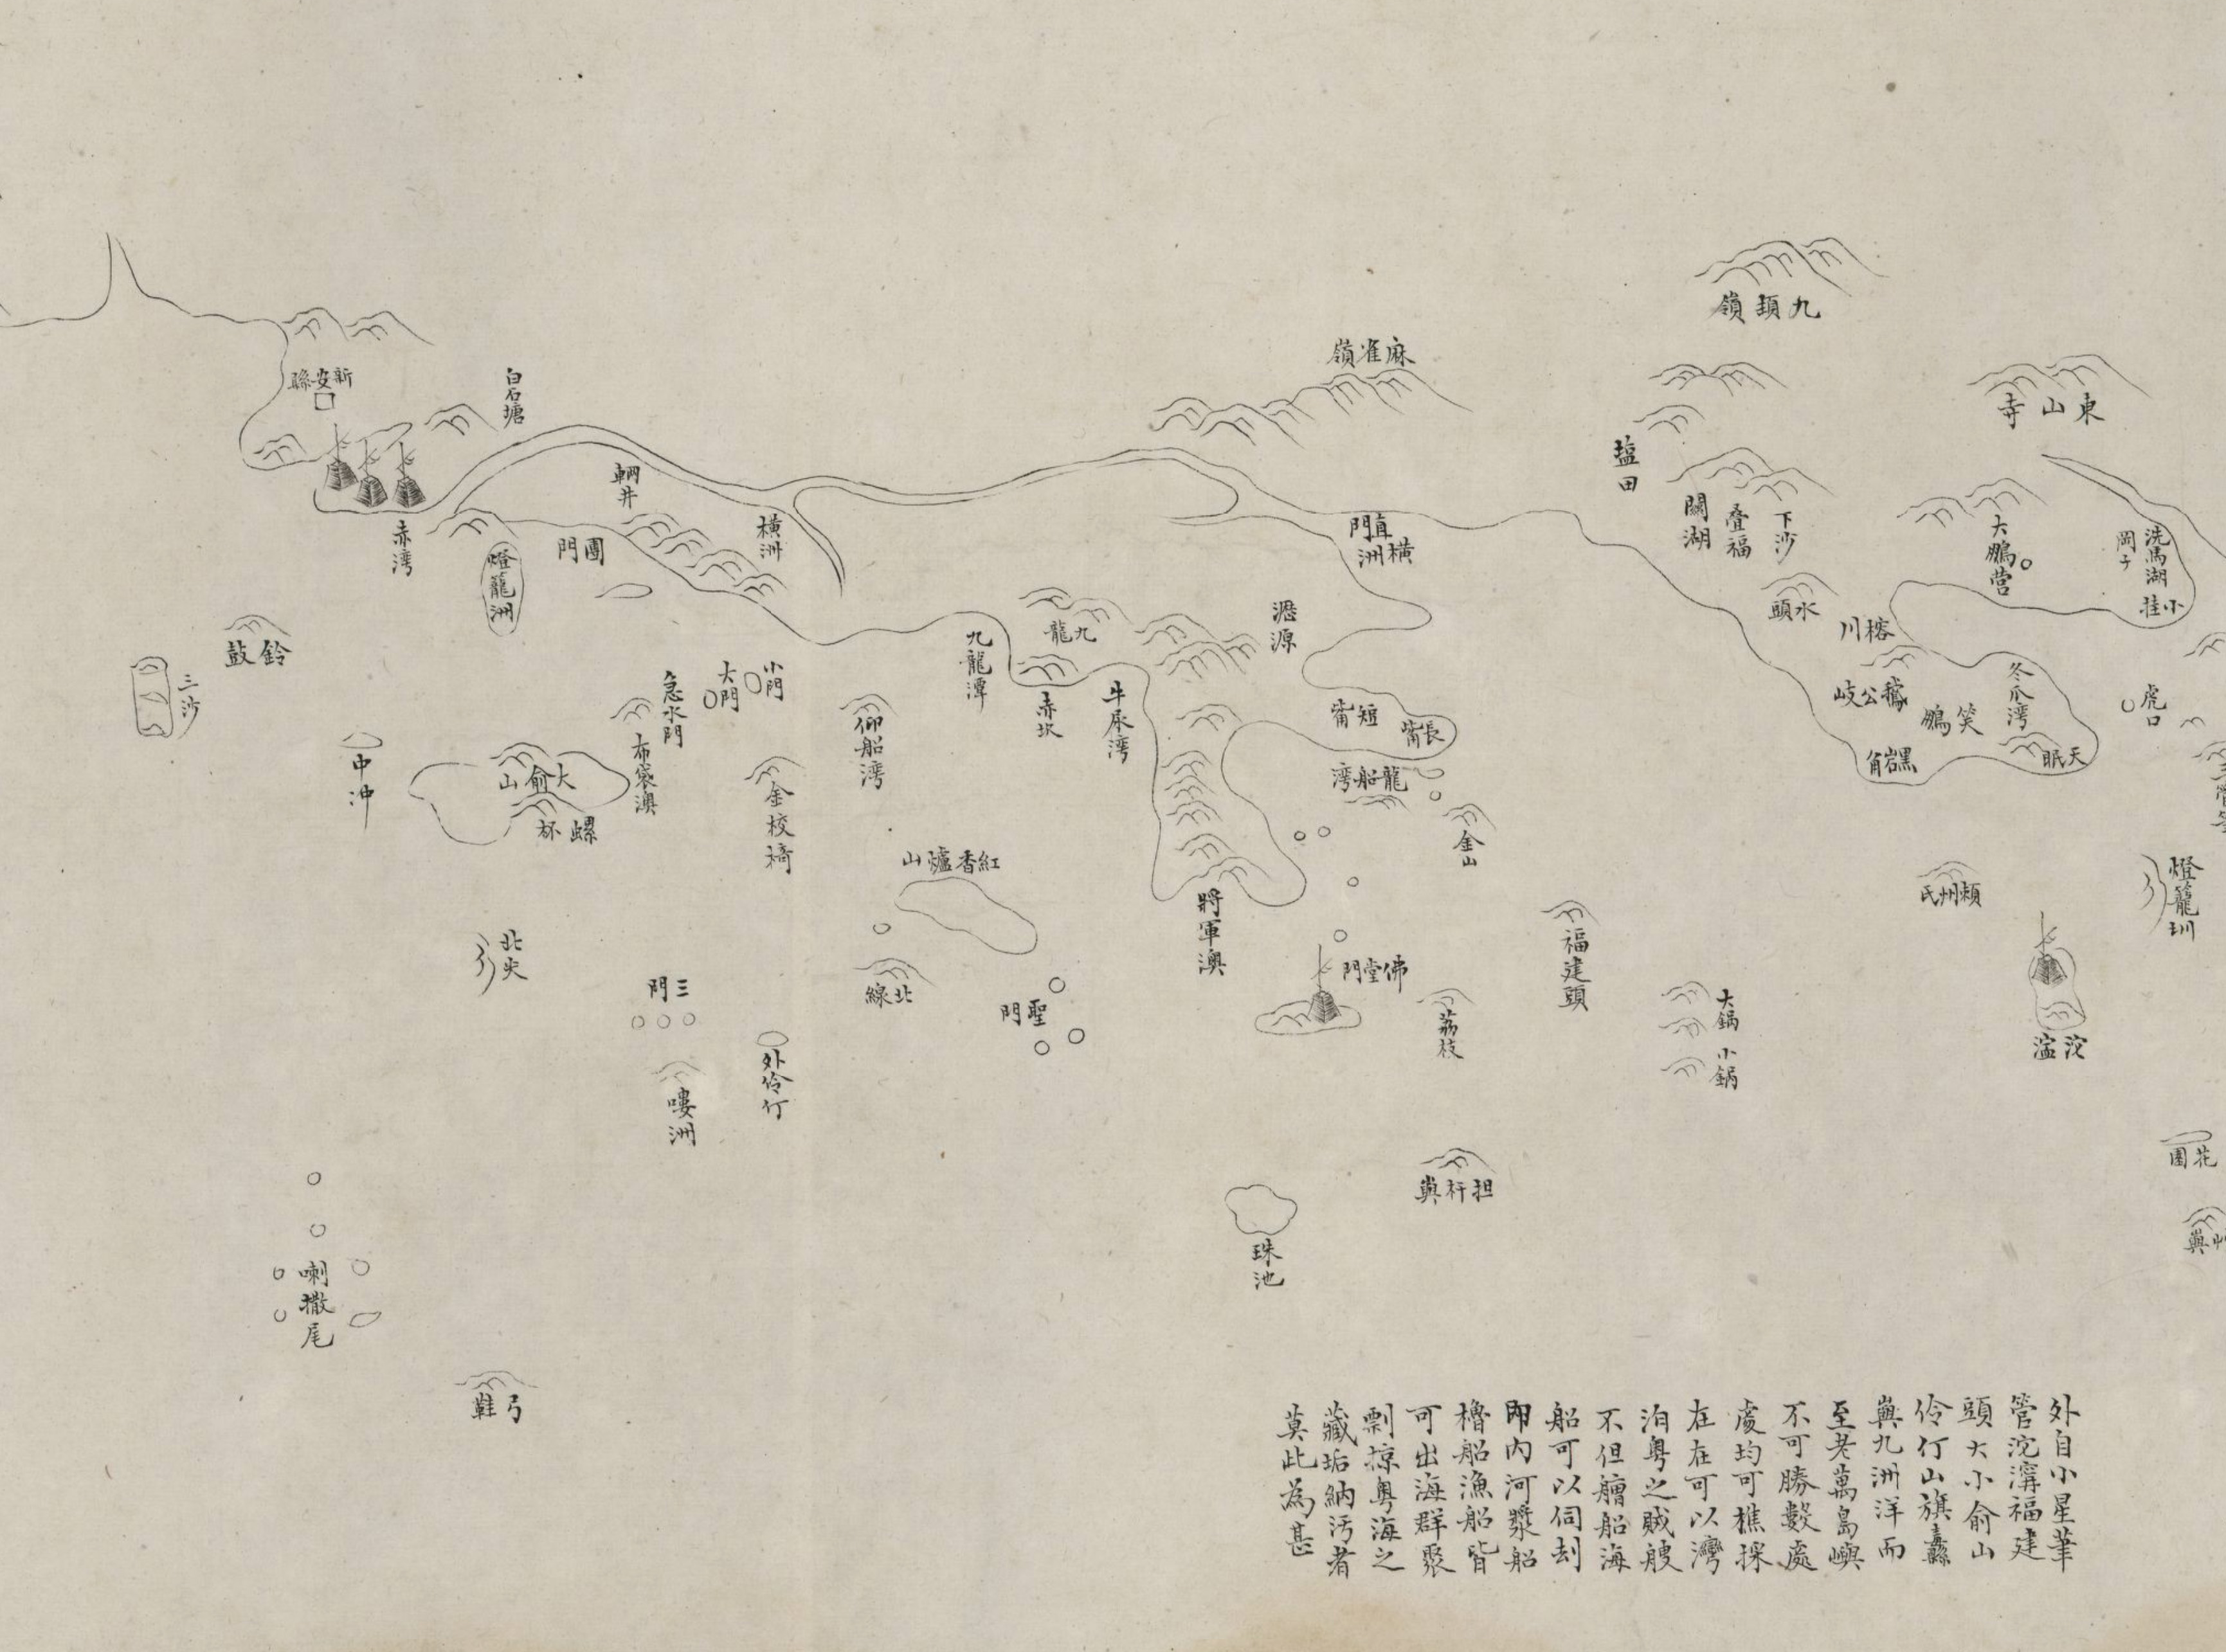 九頚嶺
麻雀嶺
東山寺
新安縣
白石塘
塩田
輞井
橫洲
關湖
叠福
下沙
大鵬营
洗馬湖
岡子
小挂
赤湾
燈龍洲
團門
直門
橫洲
水頭
榕川
鈴鼓
三沙
九龍
九龍潭
赤坎
牛尿湾
瀝源
小門
大門
急水門
布袋澳
仰船湾
短嘴
長嘴
龍船湾
鵝公岐
笑鵬
冬瓜湾
黑岩角
天眠
虎口
中沖
大俞山
螺杯
金校椅
金山
紅香爐山
將軍澳
福建頭
頼州氏
燈籠圳
北尖
三門
北線
聖門
佛堂門
荔枝
大鍋
小鍋
沱濫
外伶仃
嘍洲
担杆嶼
珠池
花園
喇撒尾
弓鞋
外自小星華
管沱濘福建
頭大小俞山
伶仃山旗纛
嶼九洲洋而
至老萬島嶼
不可勝數處
處均可樵採
在在可以灣
泊粵之賊艘
不但艚船海
船可以伺刦
即内河槳船
櫓船漁船皆
可出海群聚
剽掠粵海之
藏垢納污者
莫此為甚